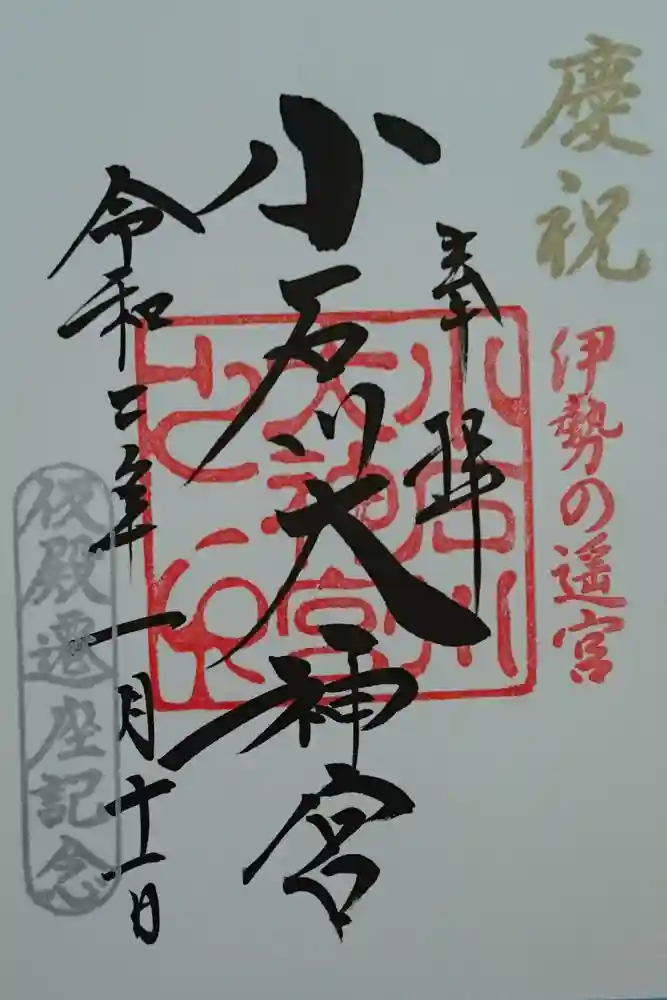 慶祝
伊勢の遥宮
奉拝
小石川大神宮
小石川
大神宮
之印
令和二年一月十一日
仮殿遷座記念